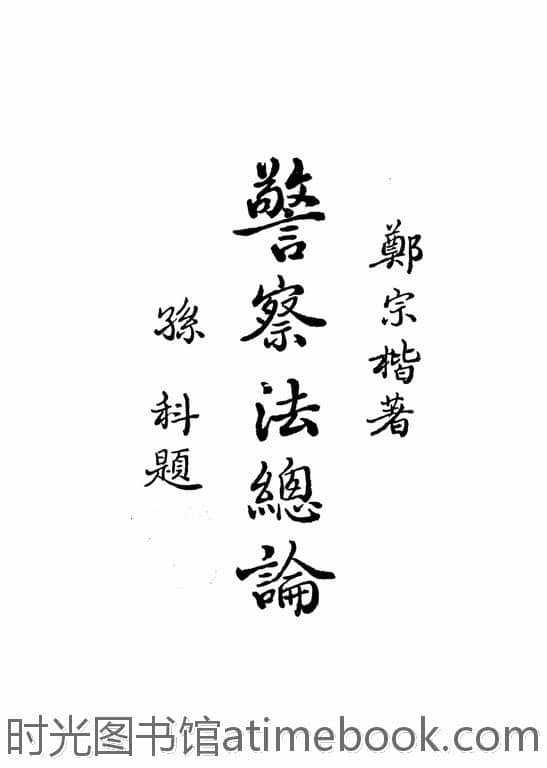 鄭宗楷著
警察法總論
孫科題
时光图书馆atimebook.com